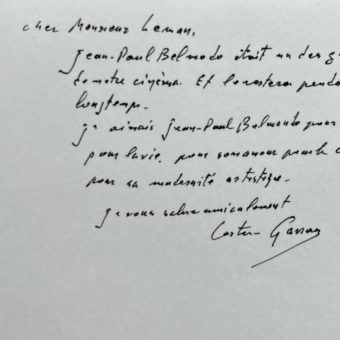 cher Monsieur Leman,
Jean-Paul Belmondo était un des g
de notre cinéma. Et le restera pend
longtemps.
J'aimais Jean-Paul Belmondo pour
pour la vie, pour son amour pour le c
pour sa modernité artistique.
Je vous salue amicalement
Costa-Gavras